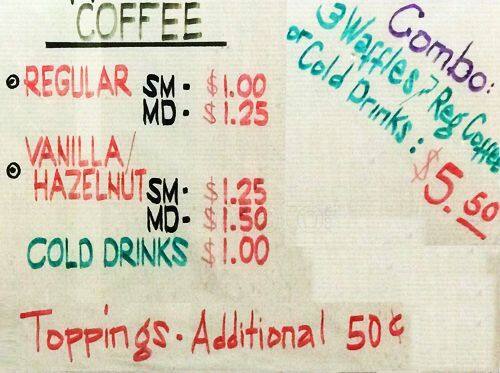 COFFEE
• REGULAR SM - $1.00
MD - $1.25
• VANILLA/
HAZELNUT SM - $1.25
MD - $1.50
COLD DRINKS $1.00
Toppings - Additional 50¢
Combo:
3 Waffles / Reg Coffee
or Cold Drinks :
$5.50